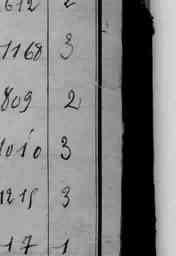 612 2
1168 3
809 2
1010 3
1215 3
17 1